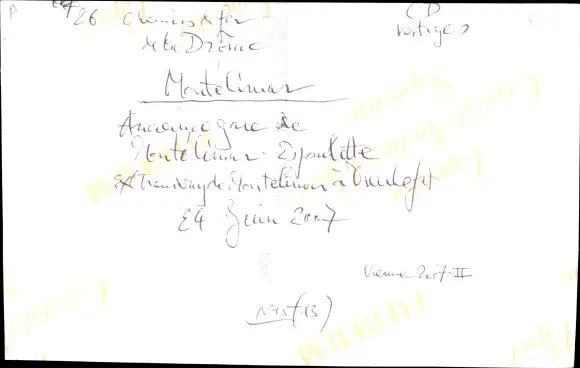 26 Chemins de fer
de la Drôme
CD
vestiges
Montélimar
Ancienne gare de
Montélimar-Espoulette
Ex Tramway de Montélimar à Dieulefit
24 Juin 2007
2007-II